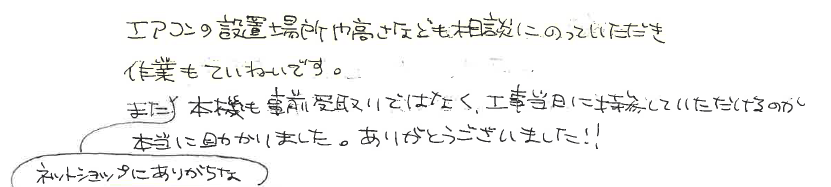 エアコンの設置場所や高さなども相談にのっていただき
作業もていねいです。
また、本機も事前受取りではなく、工事当日に持参していただけるのが
本当に助かりました。ありがとうございました!!
ネットショップにありがちな